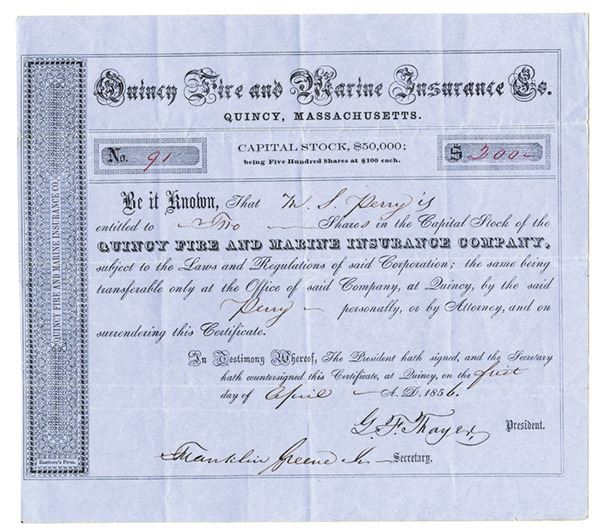 Quincy Fire and Marine Insurance Co.
QUINCY, MASSACHUSETTS.
No. 91
CAPITAL STOCK, $50,000;
being Five Hundred Shares at $100 each.
$ 200
QUINCY FIRE AND MARINE INSURANCE CO.
Be it Known, That W. S. Perry is
entitled to Two Shares in the Capital Stock of the
QUINCY FIRE AND MARINE INSURANCE COMPANY,
subject to the Laws and Regulations of said Corporation; the same being
transferable only at the Office of said Company, at Quincy, by the said
Perry personally, or by Attorney, and on
surrendering this Certificate.
In Testimony Whereof, The President hath signed, and the Secretary
hath countersigned this Certificate, at Quincy, on the first
day of April A.D. 1856.
G. F. Thayer, President.
Franklin Greene Jr. Secretary.